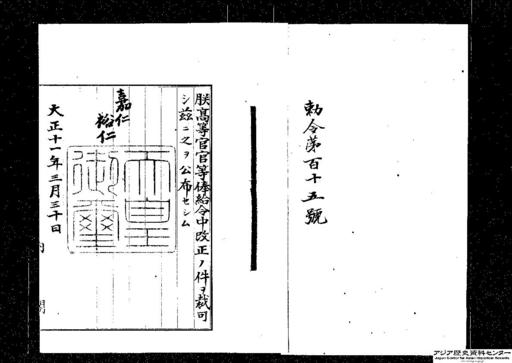 勅令第百十五號
朕高等官官等俸給令中改正ノ件ヲ裁可
シ茲ニ之ヲ公布セシム
嘉仁
裕仁
天皇
御璽
大正十一年三月三十日
内
閣
アジア歴史資料センター
Japan Center for Asian Historical Records